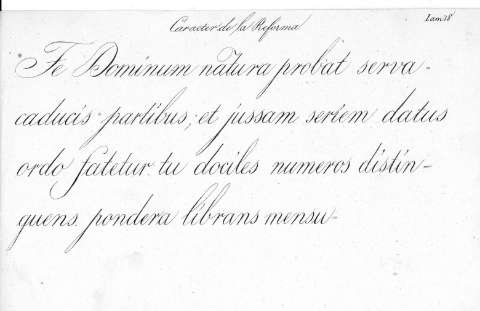 Caracter de la Reforma
Lam 38
Te Dominum natura probat serva-
caducis partibus; et jussam seriem datus
ordo fatetur. tu dociles numeros distin-
guens. pondera librans mensu-